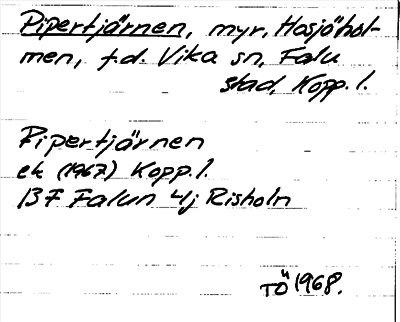 Pipertjärnen, myr, Hosjöhol-
men, f.d. Vika sn, Falu
stad, Kopp. l.
Pipertjärnen
ek (1967) Kopp. l.
13F Falun 4j Risholn
TÖ 1968.